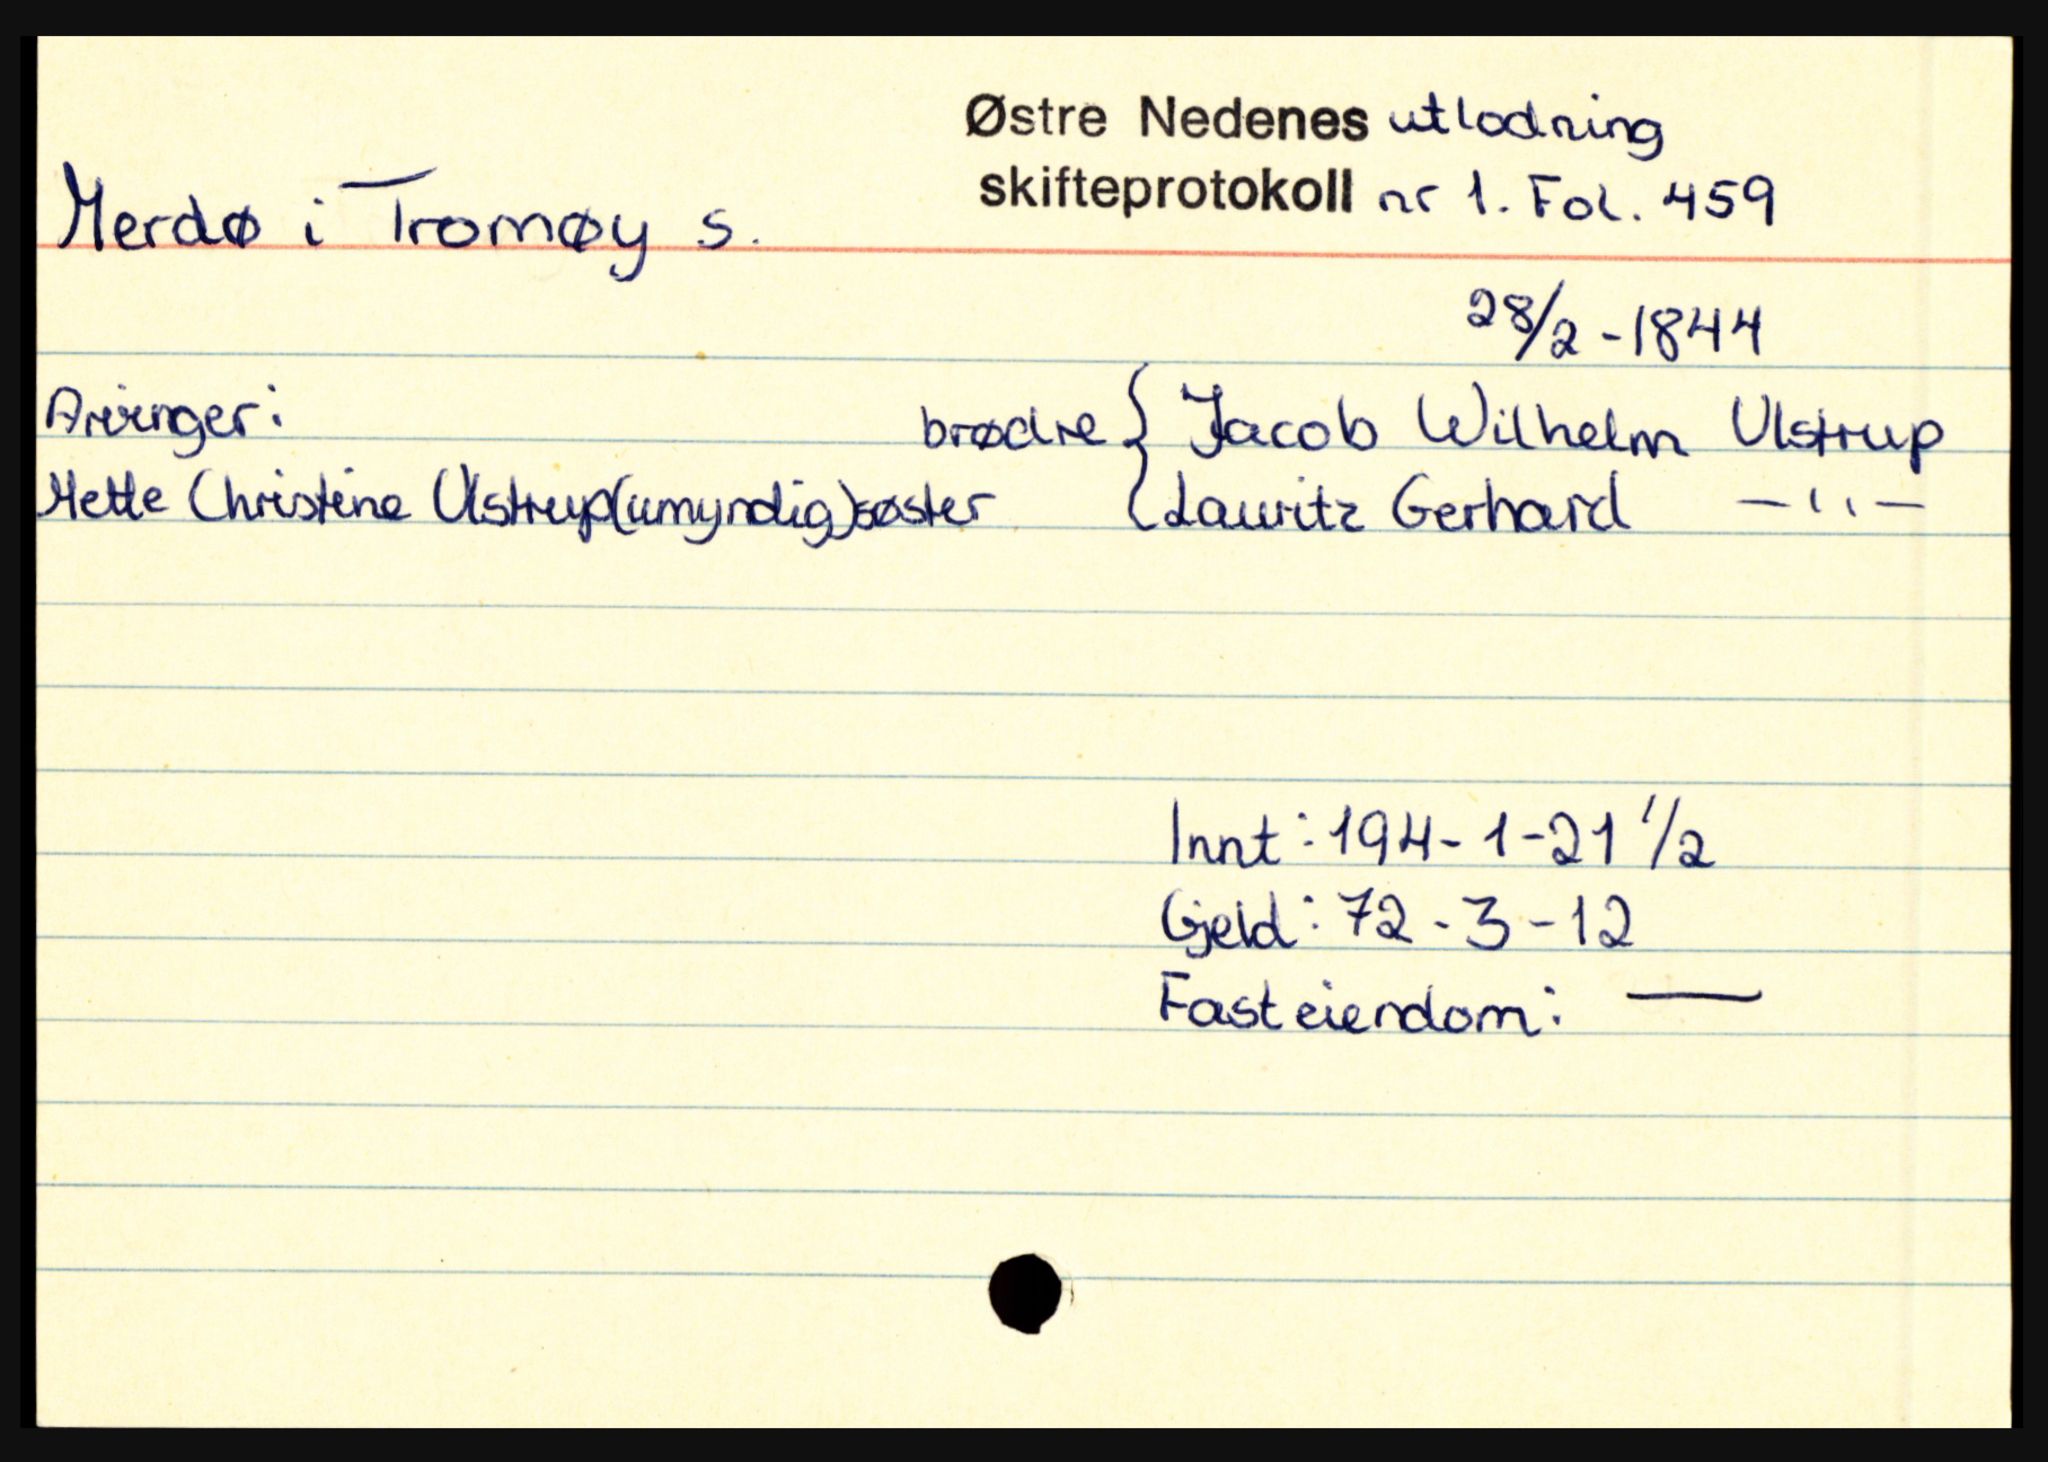 Østre Nedenes utlodning
skifteprotokoll nr 1. Fol. 459
Merdø i Tromøy s.
28/2 - 1844
Arvinger:
brødre { Jacob Wilhelm Ulstrup
Mette Christine Ulstrup (umyndig) søster { Lauritz Gerhard —"—
Innt: 194 - 1 - 21 1/2
Gjeld: 72 - 3 - 12
Fast eiendom: —